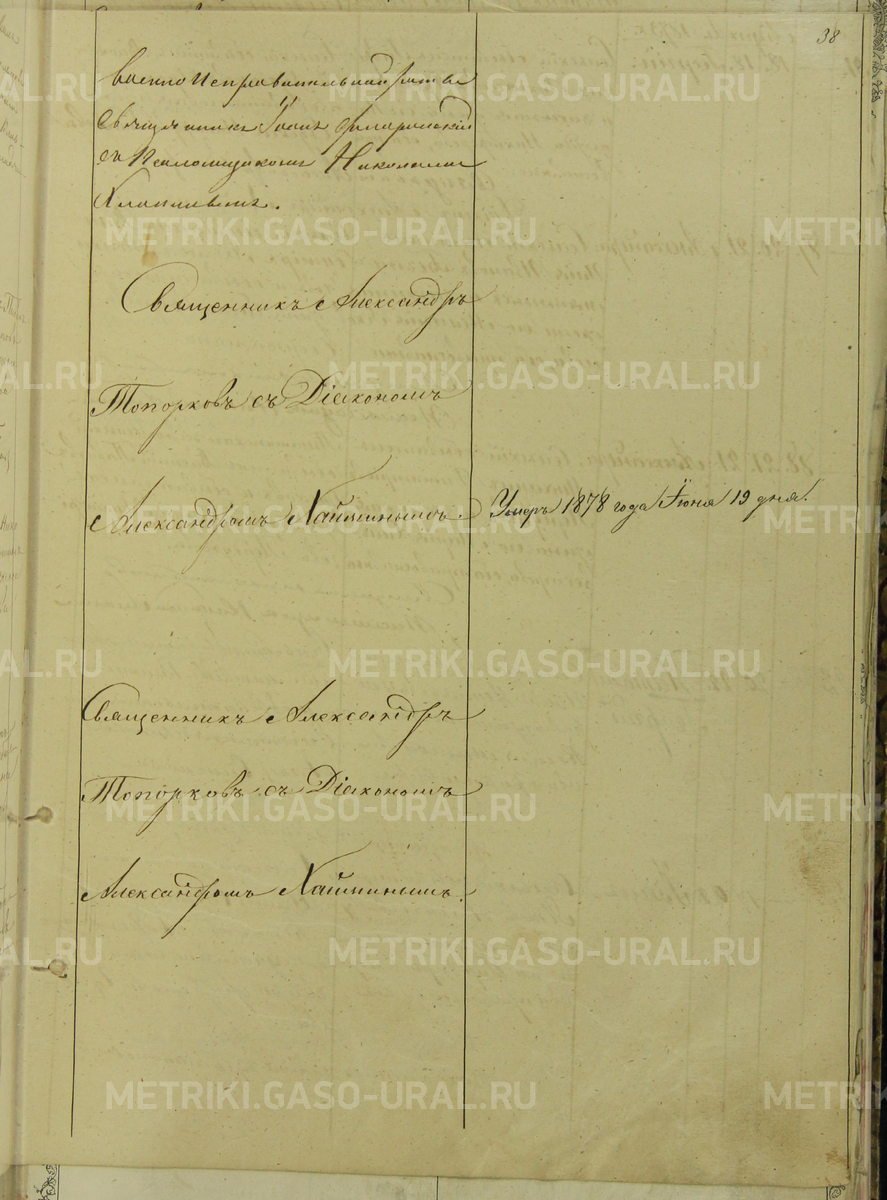 38
Военно Исправительной роты
Священникъ Іоаннъ
съ Псаломщикомъ Николаемъ
Священникъ Александръ
Топорковъ съ Діакономъ
Александромъ Хайминымъ.
Умеръ 1878 года Іюня 19 дня.
Священникъ Александръ
Топорковъ съ Діакономъ
Александромъ Хайминымъ.
METRIKI.GASO-URAL.RU